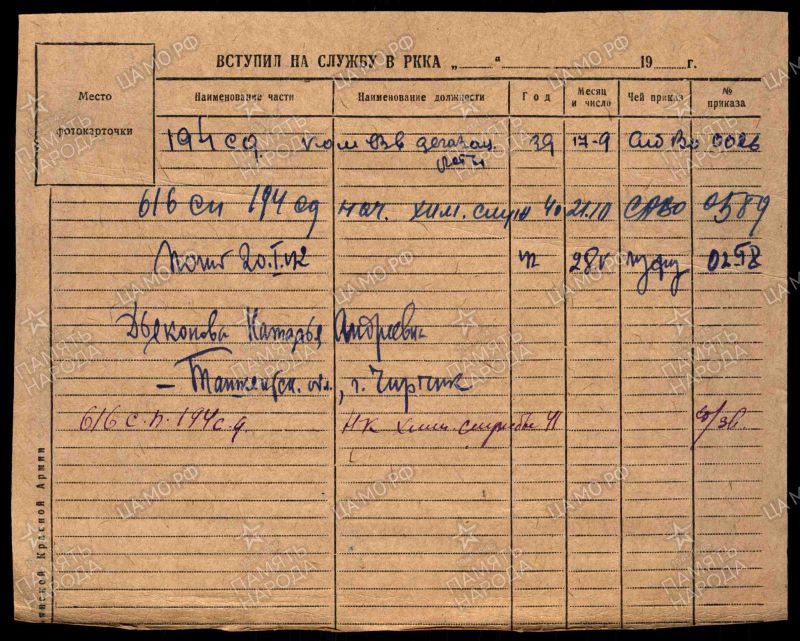 ВСТУПИЛ НА СЛУЖБУ В РККА „ “ 19 г.
Место фотокарточки
Наименование части Наименование должности Год Месяц и число Чей приказ № приказа
194 сд ком Вв дегазац. 39 17-9 СибВо 0026
роты
616 сп 194 сд нач. хим. служ 40 21.10 САВО 0589
Погиб 20.I.42 42 28V гуфу
Дьяконова Наталья Андреевн
— Ташкентск. обл., г. Чирчик
616 с.п. 194 с.д. НК хим. службы 41
Красной Армии
ЦАМО.РФ
ПАМЯТЬ НАРОДА